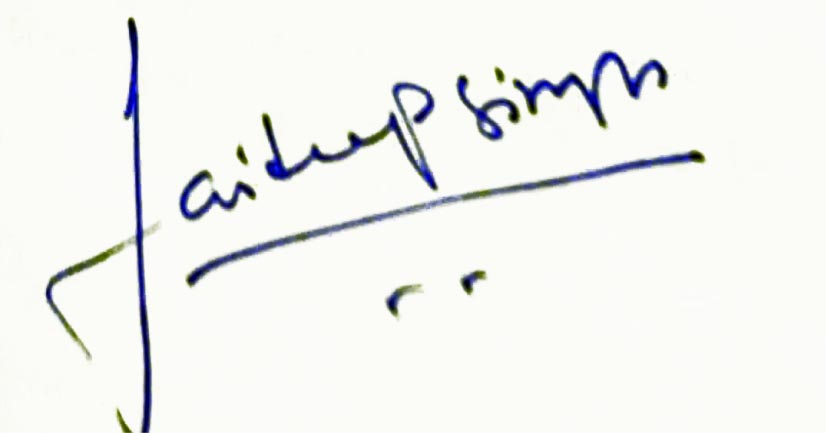 Jaideep Singh